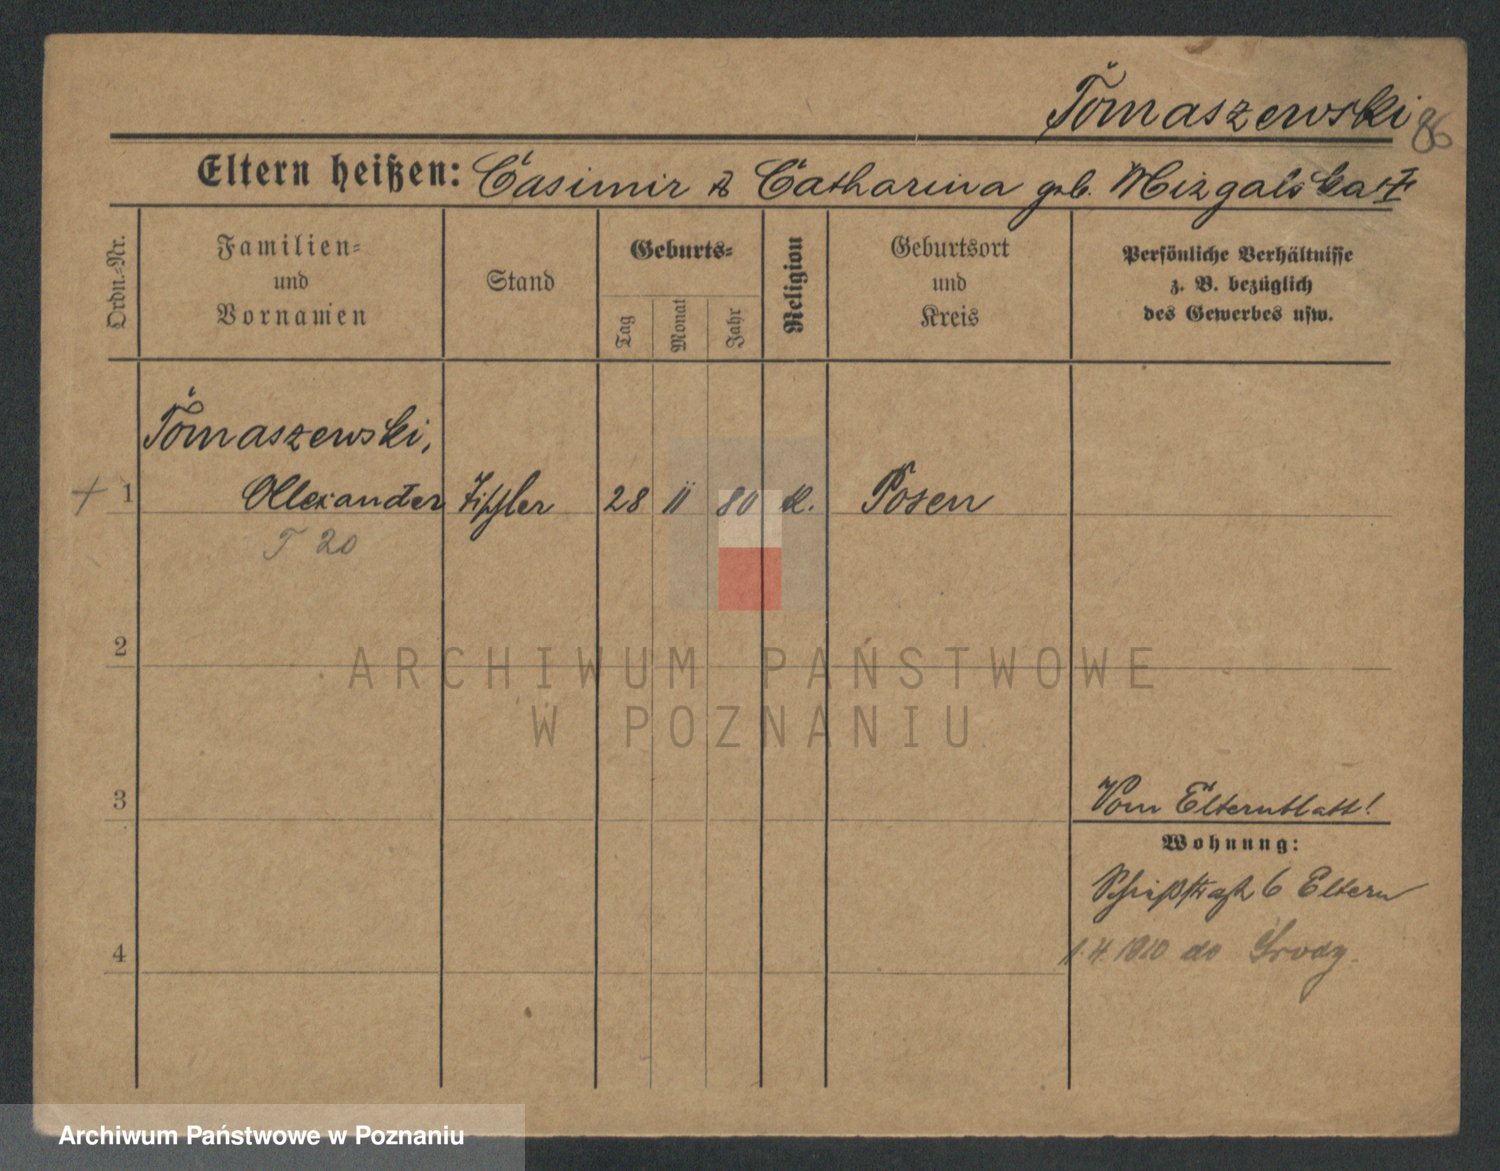 Tomaszewski
86
Eltern heißen: Casimir & Catharina geb. Mizgalska
Ordn.-Nr.
Familien-
und
Vornamen
Stand
Geburts-
Tag
Monat
Jahr
Religion
Geburtsort
und
Kreis
Persönliche Verhältnisse
z. B. bezüglich
des Gewerbes usw.
Tomaszewski,
+ 1 Alexander Tischler 28 II 80 K. Posen
T 20
2
ARCHIWUM PAŃSTWOWE
W POZNANIU
3
Vom Elternblatt!
Wohnung:
6 Eltern
4
do Środy.
Archiwum Państwowe w Poznaniu